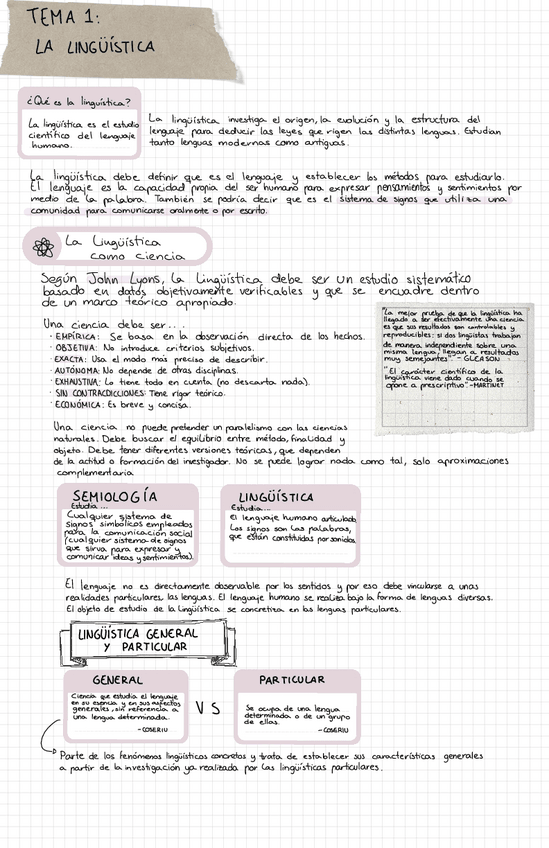 TEMA 1:
LA LINGÜÍSTICA
¿Qué es la lingüística?
La lingüística es el estudio
científico del lenguaje
humano.
La lingüística investiga el origen, la evolución y la estructura del
lenguaje para deducir las leyes que rigen las distintas lenguas. Estudian
tanto lenguas modernas como antiguas.
La lingüística debe definir que es el lenguaje y establecer los métodos para estudiarlo.
El lenguaje es la capacidad propia del ser humano para expresar pensamientos y sentimientos por
medio de la palabra. También se podría decir que es el sistema de signos que utiliza una
comunidad para comunicarse oralmente o por escrito.
La Lingüística
como ciencia
Según John Lyons, la Lingüística debe ser un estudio sistemático
basado en datos objetivamente verificables y que se encuadre dentro
de un marco teórico apropiado.
Una ciencia debe ser....
· EMPÍRICA: Se basa en la observación directa de los hechos.
· OBJETIVA: No introduce criterios subjetivos.
· EXACTA: Usa el modo más preciso de describir.
· AUTÓNOMA: No depende de otras disciplinas.
· EXHAUSTIVA: Lo tiene todo en cuenta (no descarta nada).
· SIN CONTRADICCIONES: Tene rigor teórico.
· ECONÓMICA: Es breve y concisa.
"La mejor prueba de que la lingüística ha
llegado a ser efectivamente una ciencia
es que sus resultados son controlables y
reproducibles: si dos lingüistas trabajan
de manera independiente sobre una
misma lengua, llegan a resultados
muy semejantes". - GLEASON
"El carácter científico de la
lingüística viene dado cuando se
opone a prescriptivo". -MARTINET
Una ciencia no puede pretender un paralelismo con las ciencias
naturales. Debe buscar el equilibrio entre método, finalidad y
objeto. Debe tener diferentes versiones teóricas, que dependen
de la actitud o formación del investigador. No se puede lograr nada como tal, solo aproximaciones
complementaria
SEMIOLOGÍA
Estudia...
Cualquier sistema de
signos simbólicos empleados
para la comunicación social
(cualquier sistema de signos
que sirva para expresar y
comunicar ideas y sentimientos).
LINGÜÍSTICA
Estudia...
el lenguaje humano articulado.
Los signos son las palabras,
que están constituidas por sonidos.
El lenguaje no es directamente observable por los sentidos y por eso debe vincularse a unas
realidades particulares, las lenguas. El lenguaje humano se realiza bajo la forma de lenguas diversas.
El objeto de estudio de la lingüística se concretiza en las lenguas particulares.
LINGÜÍSTICA GENERAL
Y PARTICULAR
GENERAL
Ciencia que estudia el lenguaje
en su esencia y en sus aspectos
generales, sin referencia a
una lengua determinada.
-COSERIU
VS
PARTICULAR
Se ocupa de una lengua
determinada o de un grupo
de ellas.
-COSERIU
Parte de los fenómenos lingüísticos concretos y trata de establecer sus características generales
a partir de la investigación ya realizada por las lingüísticas particulares.